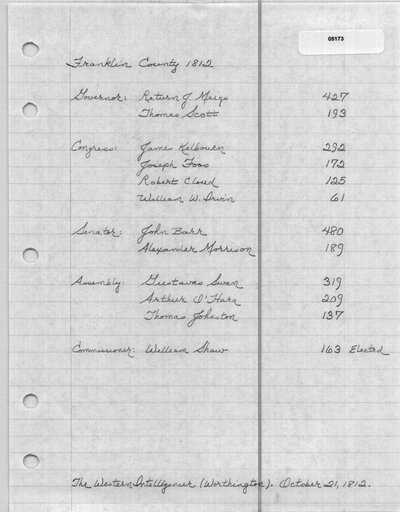 05173
Franklin County 1812
Governor: Return J Meigs 427
Thomas Scott 193
Congress: Jame Kilbourn 292
Joseph Foos 172
Robert Cloud 125
William W. Irwin 61
Senator: John Barr 480
Alexander Morrison 189
Assembly: Gustavas Swan 319
Arthur O'Hara 209
Thomas Johnston 137
Commissioner: William Shaw 163 Elected
The Western Intelligencer (Worthington). October 21, 1812.